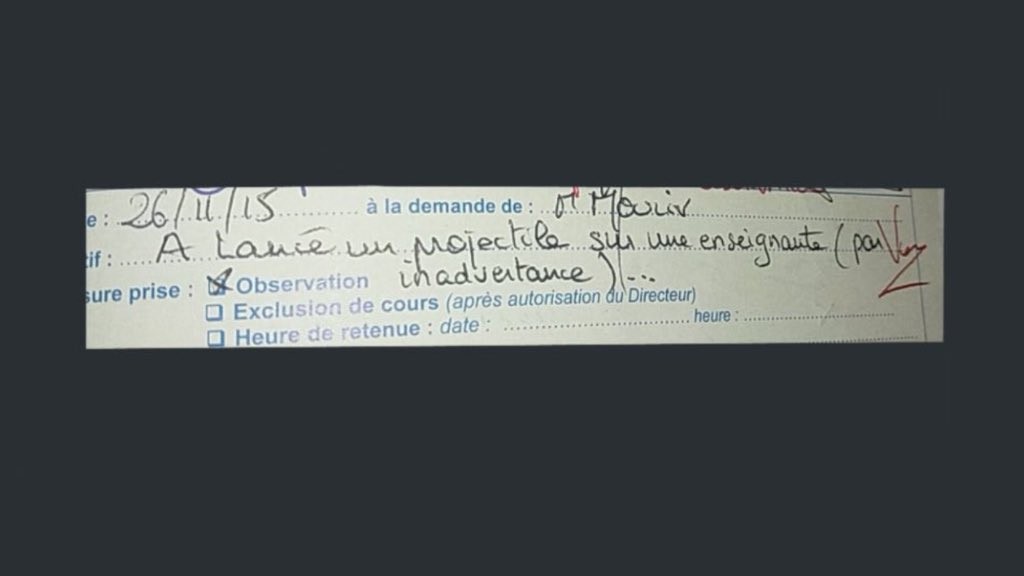 e : 26/11/15 à la demande de :
if : A Lancé un projectile sur une enseignante (par
inadvertance) ...
sure prise : Observation
Exclusion de cours (après autorisation du Directeur)
Heure de retenue : date : heure :